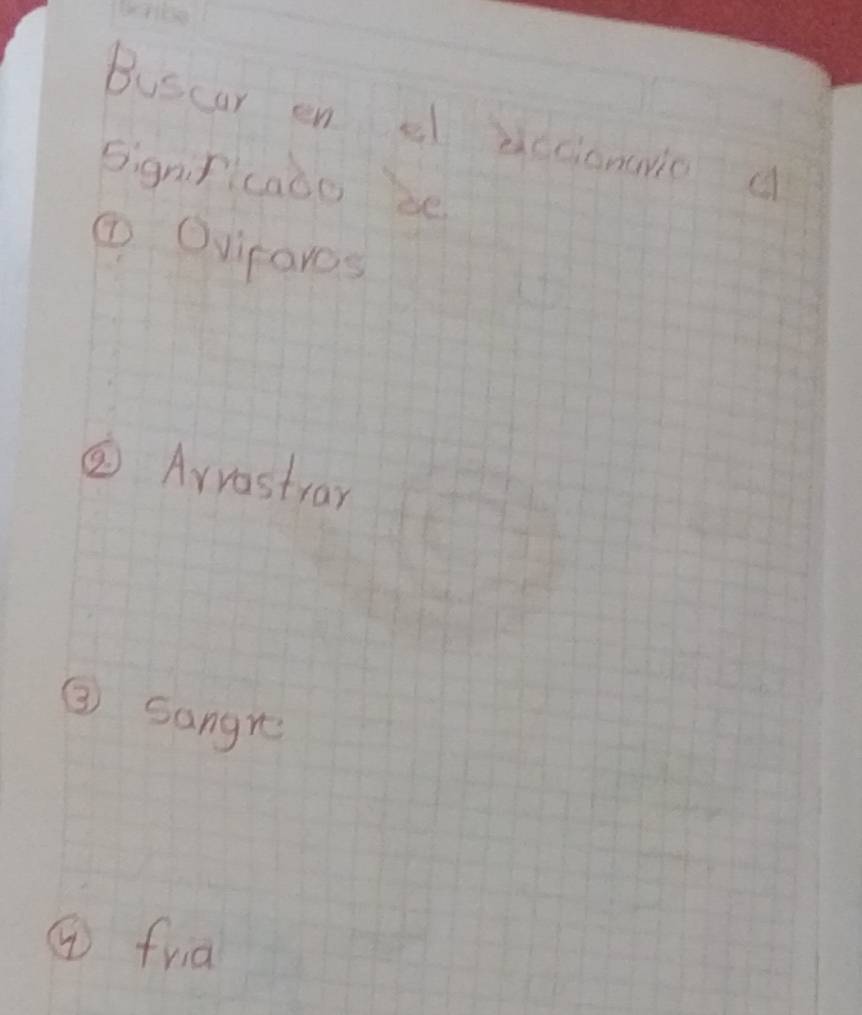 Scribe
Buscar en el diccionario el
significado de
① Oviparos
② Arrastrar
③ Sangre
④ fria